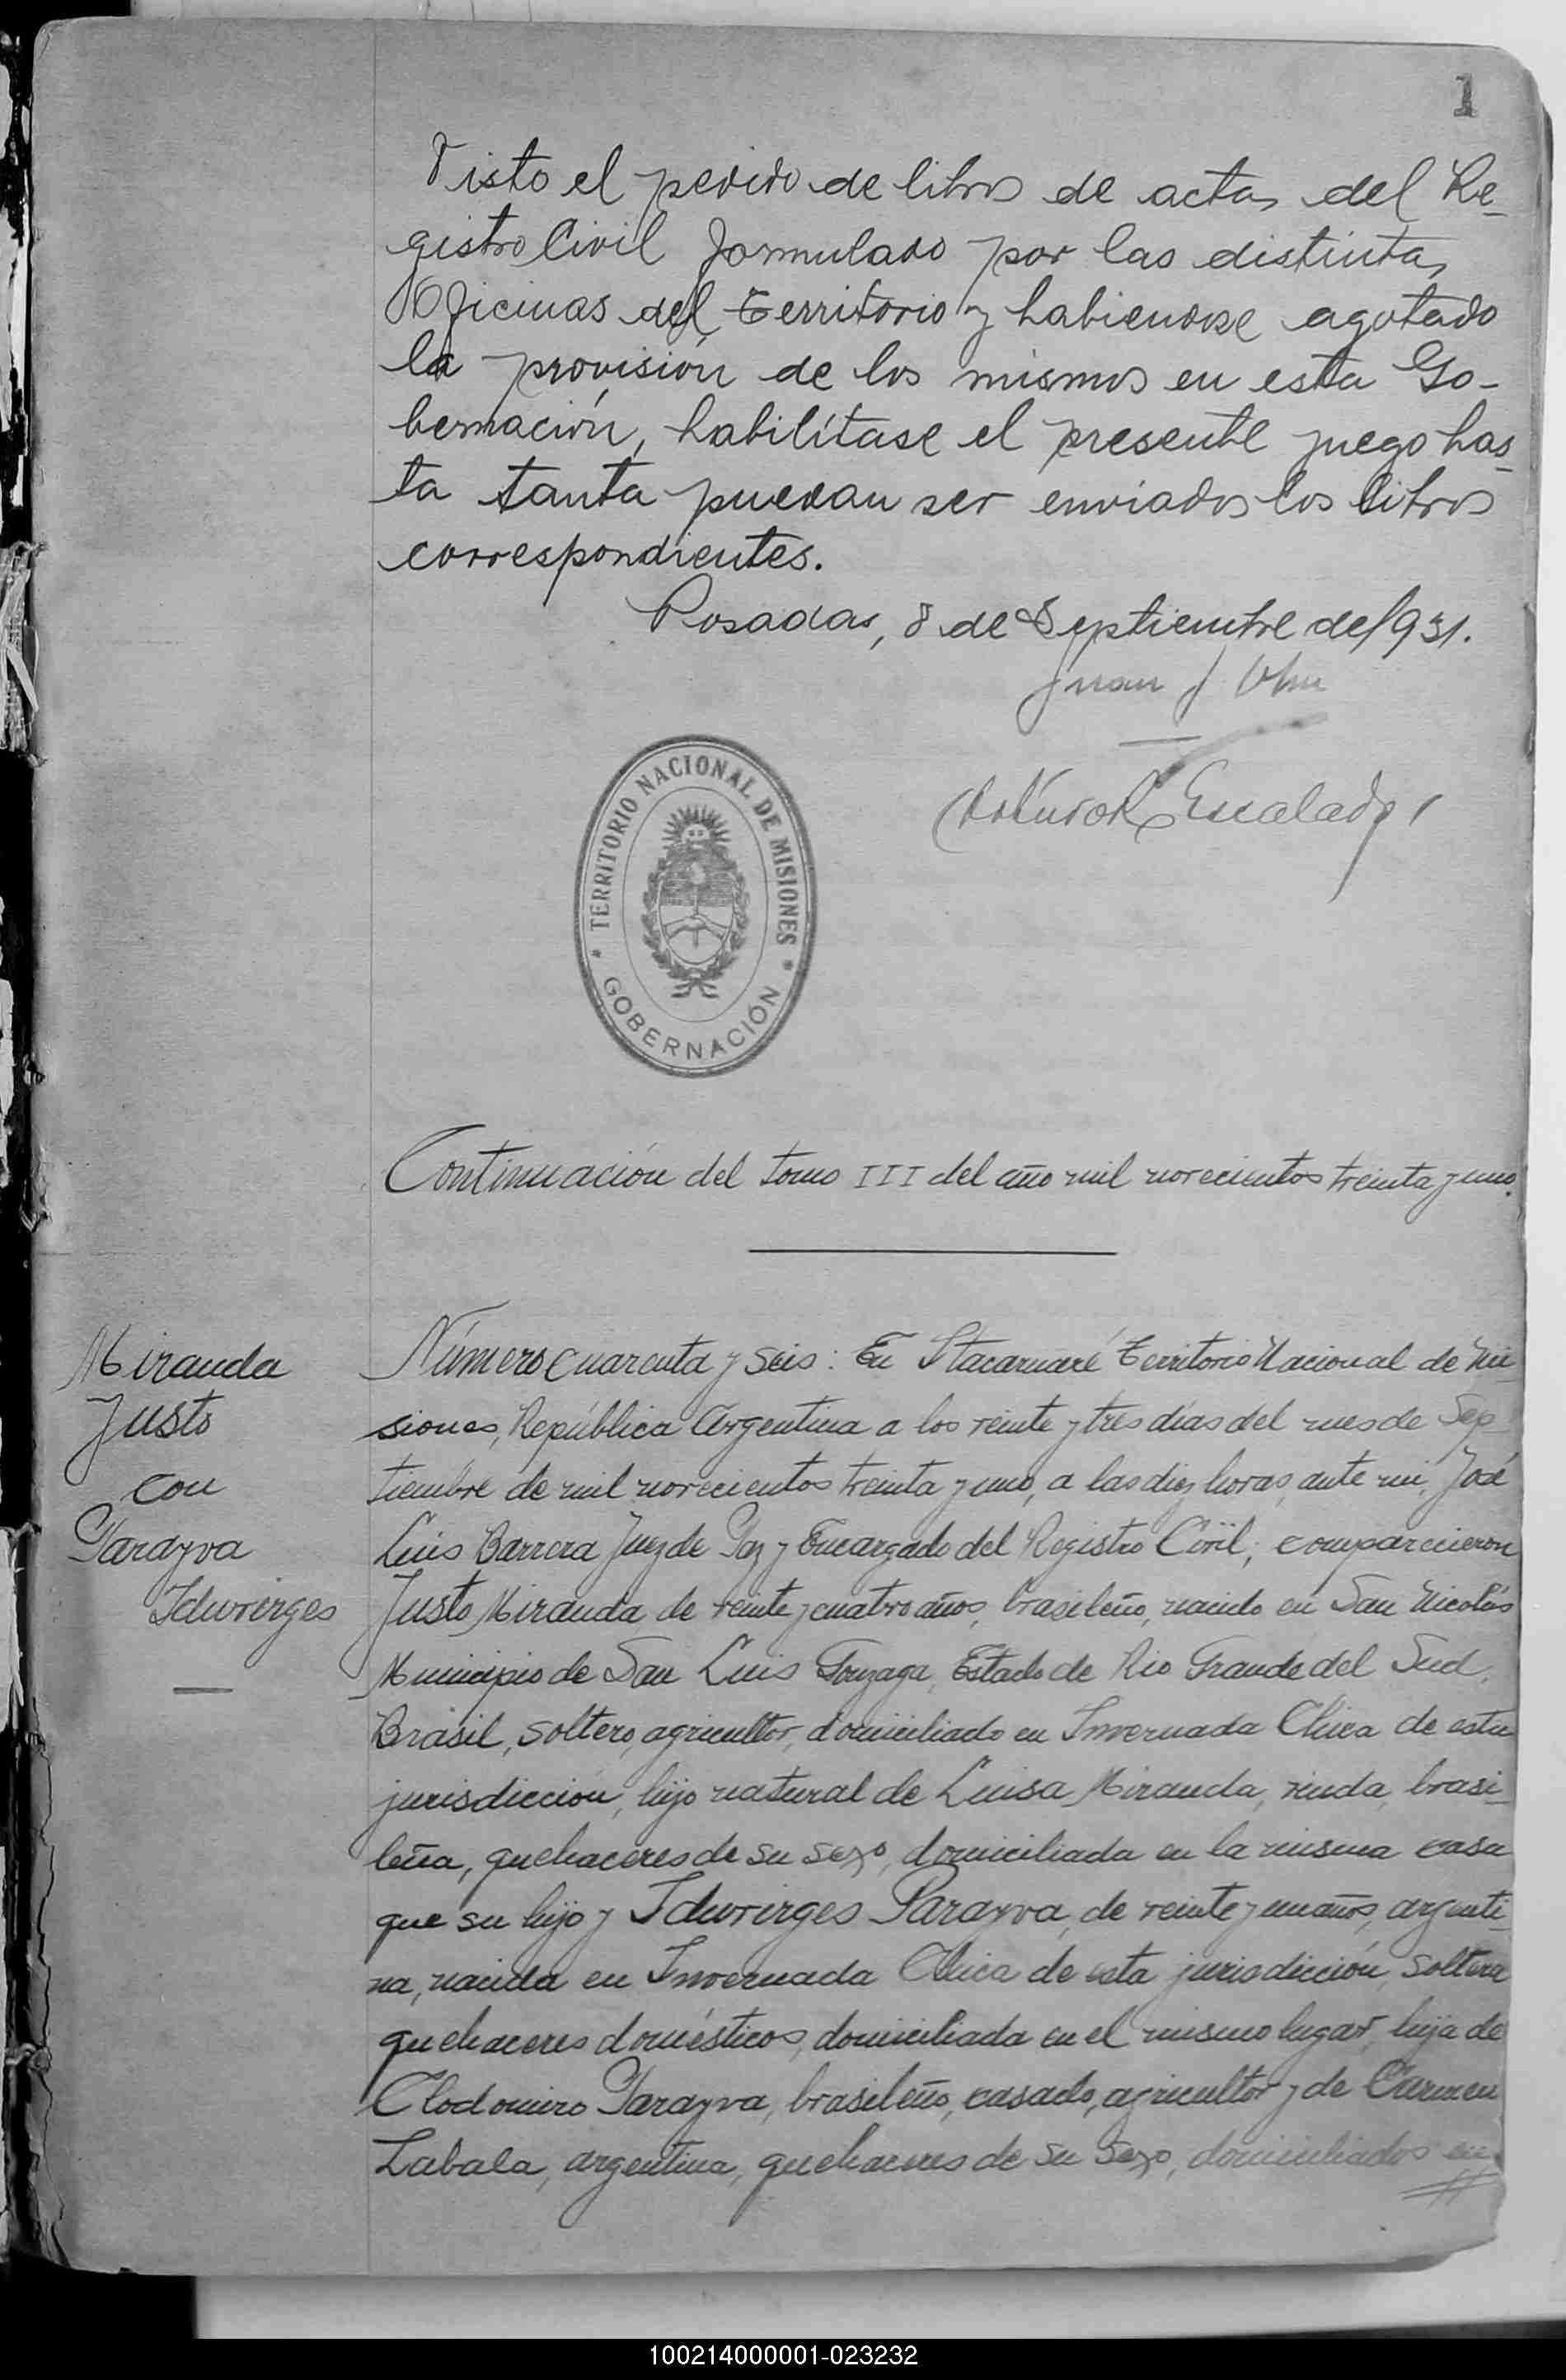 1
Visto el pedido de libros de actas del Re-
gistro Civil formulado por las distintas
Oficinas del Territorio y habiendose agotado
la provisión de los mismos en esta Go-
bernación, habilítase el presente juego has-
ta tanta puedan ser enviados los libros
correspondientes.
Posadas, 8 de Septiembre de 1931.
Juan J.
Escalada
TERRITORIO NACIONAL DE MISIONES
GOBERNACIÓN
Continuación del tomo III del año mil novecientos treinta y uno.
Miranda
Justo
con
Parayva
Iduvirges
Número cuarenta y seis: En Itacaruaré Territorio Nacional de Mi-
siones, República Argentina a los veinte y tres días del mes de Sep-
tiembre de mil novecientos treinta y uno, a las diez horas, ante mi, José
Luis Barrera Juez de Paz y Encargado del Registro Civil; comparecieron
Justo Miranda, de veinte y cuatro años, brasileño, nacido en San Nicolás
Municipio de San Luis Gonzaga, Estado de Rio Grande del Sud,
Brasil, soltero, agricultor, domiciliado en Invernada Chica de esta
jurisdicción, hijo natural de Luisa Miranda, viuda, brasi-
leña, quehaceres de su sexo, domiciliada en la misma casa
que su hijo y Iduvirges Parayva, de veinte y un años, argenti-
na, nacida en Invernada Chica de esta jurisdicción, soltera
quehaceres domésticos, domiciliada en el mismo lugar, hija de
Clodomiro Parayva, brasileño, casado, agricultor y de Carmen
Labala, argentina, quehaceres de su sexo, domiciliados en
100214000001-023232